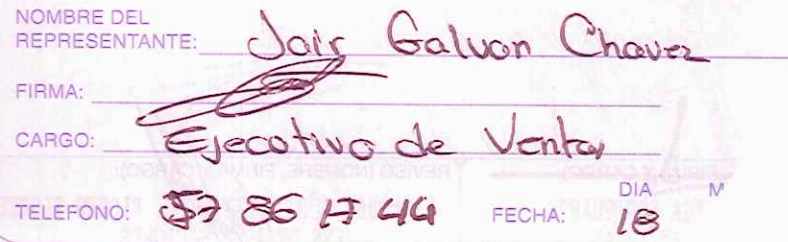 NOMBRE DEL
REPRESENTANTE: Jair Galvan Chavez
FIRMA:
CARGO: Ejecutivo de Ventas
DIA M
TELEFONO: 57 86 17 44 FECHA: 18